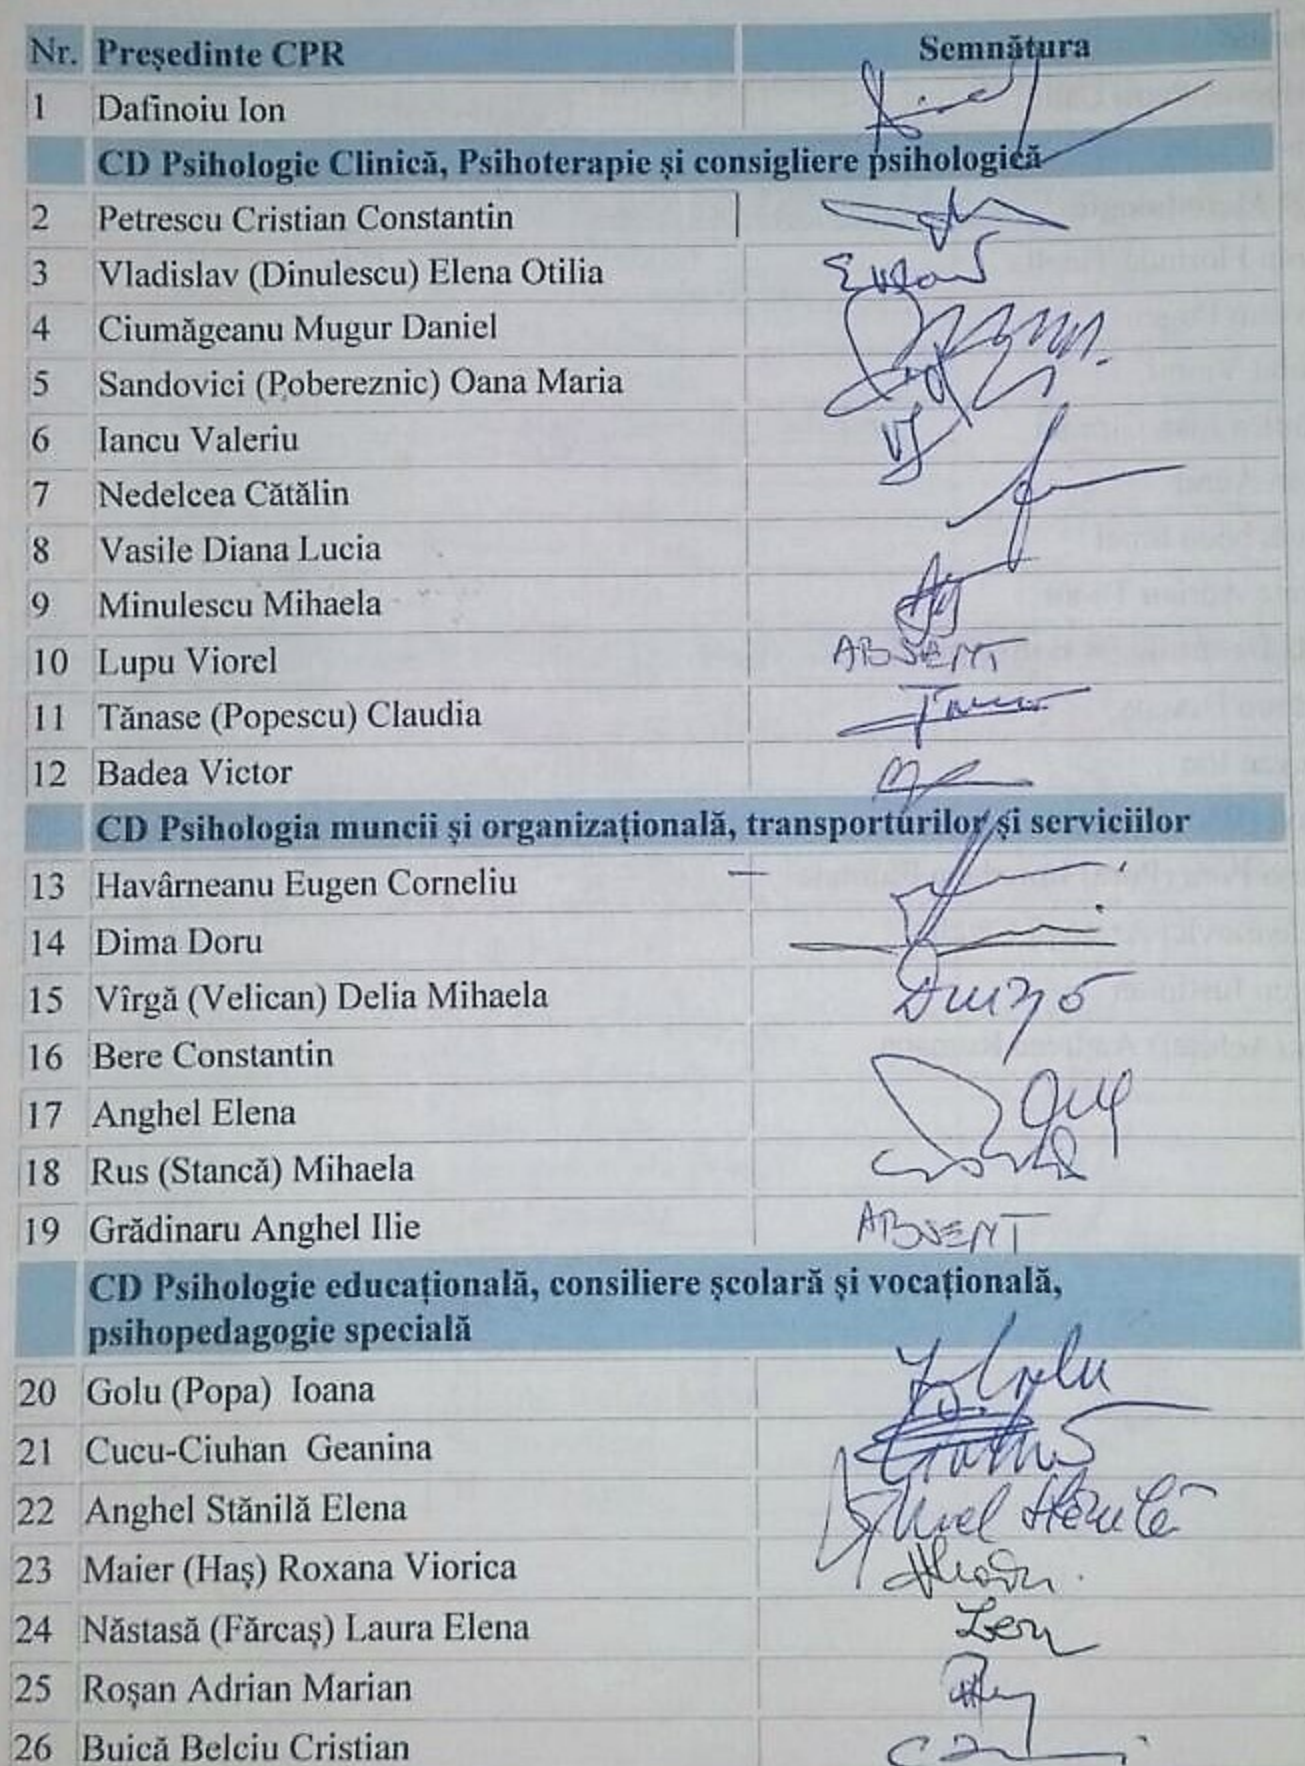 Nr. Președinte CPR Semnătura
1 Dafinoiu Ion
CD Psihologie Clinică, Psihoterapie și consigliere psihologică
2 Petrescu Cristian Constantin
3 Vladislav (Dinulescu) Elena Otilia
4 Ciumăgeanu Mugur Daniel
5 Sandovici (Pobereznic) Oana Maria
6 Iancu Valeriu
7 Nedelcea Cătălin
8 Vasile Diana Lucia
9 Minulescu Mihaela
10 Lupu Viorel ABSENT
11 Tănase (Popescu) Claudia
12 Badea Victor
CD Psihologia muncii și organizațională, transporturilor și serviciilor
13 Havârneanu Eugen Corneliu
14 Dima Doru
15 Vîrgă (Velican) Delia Mihaela
16 Bere Constantin
17 Anghel Elena
18 Rus (Stancă) Mihaela
19 Grădinaru Anghel Ilie ABSENT
CD Psihologie educațională, consiliere școlară și vocațională,
psihopedagogie specială
20 Golu (Popa) Ioana
21 Cucu-Ciuhan Geanina
22 Anghel Stănilă Elena
23 Maier (Haș) Roxana Viorica
24 Năstasă (Fărcaș) Laura Elena
25 Roșan Adrian Marian
26 Buică Belciu Cristian